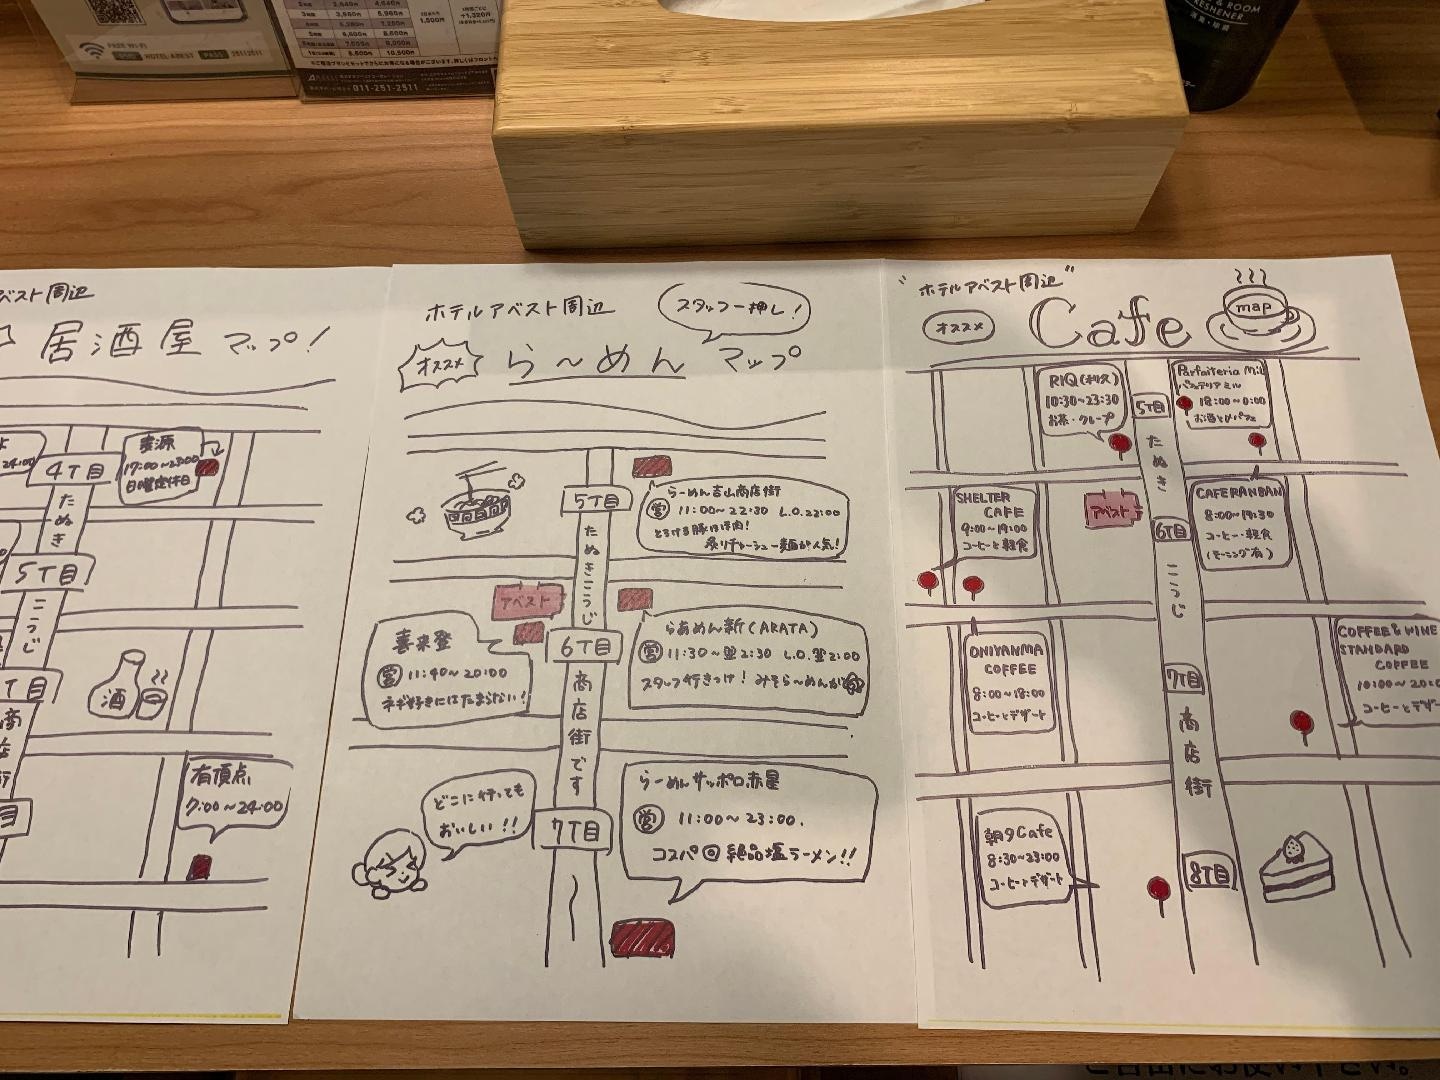 FREE Wi-Fi
HOTEL-ABEST PASS 25112511
011-251-2511
& ROOM
FRESHENER
消臭・除菌
ベスト周辺
居酒屋マップ!
24:00
4丁目
壷源
17:00~23:00
日曜定休日
たぬき
5丁目
こうじ
丁目
商
店
街
酒
有頂点
7:00~24:00
ホテルアベスト周辺
スタッフ一押し!
オススメ
ら~めんマップ
5丁目
らーめん吉山商店街
営 11:00~22:30 L.O.22:00
とろける豚ほほ肉!
炙りチャーシュー麺が人気!
たぬきこうじ
アベスト
喜来登
営 11:40~20:00
ネギ好きにはたまらない!
6丁目
らあめん新(ARATA)
営 11:30~翌2:30 L.O.翌2:00
スタッフ行きつけ! みそら~めんが
商店街です
どこに行っても
おいしい!!
7丁目
らーめんサッポロ赤星
営 11:00~23:00.
コスパ◎絶品塩ラーメン!!
"ホテルアベスト周辺"
オススメ
Cafe
map
RIQ(利久)
10:30~23:30
お茶・クレープ
5丁目
Parfaiteria miL
パフェテリアミル
18:00~0:00
お酒とパフェ
たぬき
SHELTER
CAFE
9:00~19:00
コーヒーと軽食
アベスト
6丁目
CAFE RANBAN
8:00~19:30
コーヒー・軽食
(モーニング有)
こうじ
ONIYANMA
COFFEE
8:00~18:00
コーヒーとデザート
7丁目
COFFEE & WINE
STANDARD
COFFEE
10:00~20:0
コーヒーとデザート
商店街
朝夕Cafe
8:30~23:00
コーヒーとデザート
8丁目